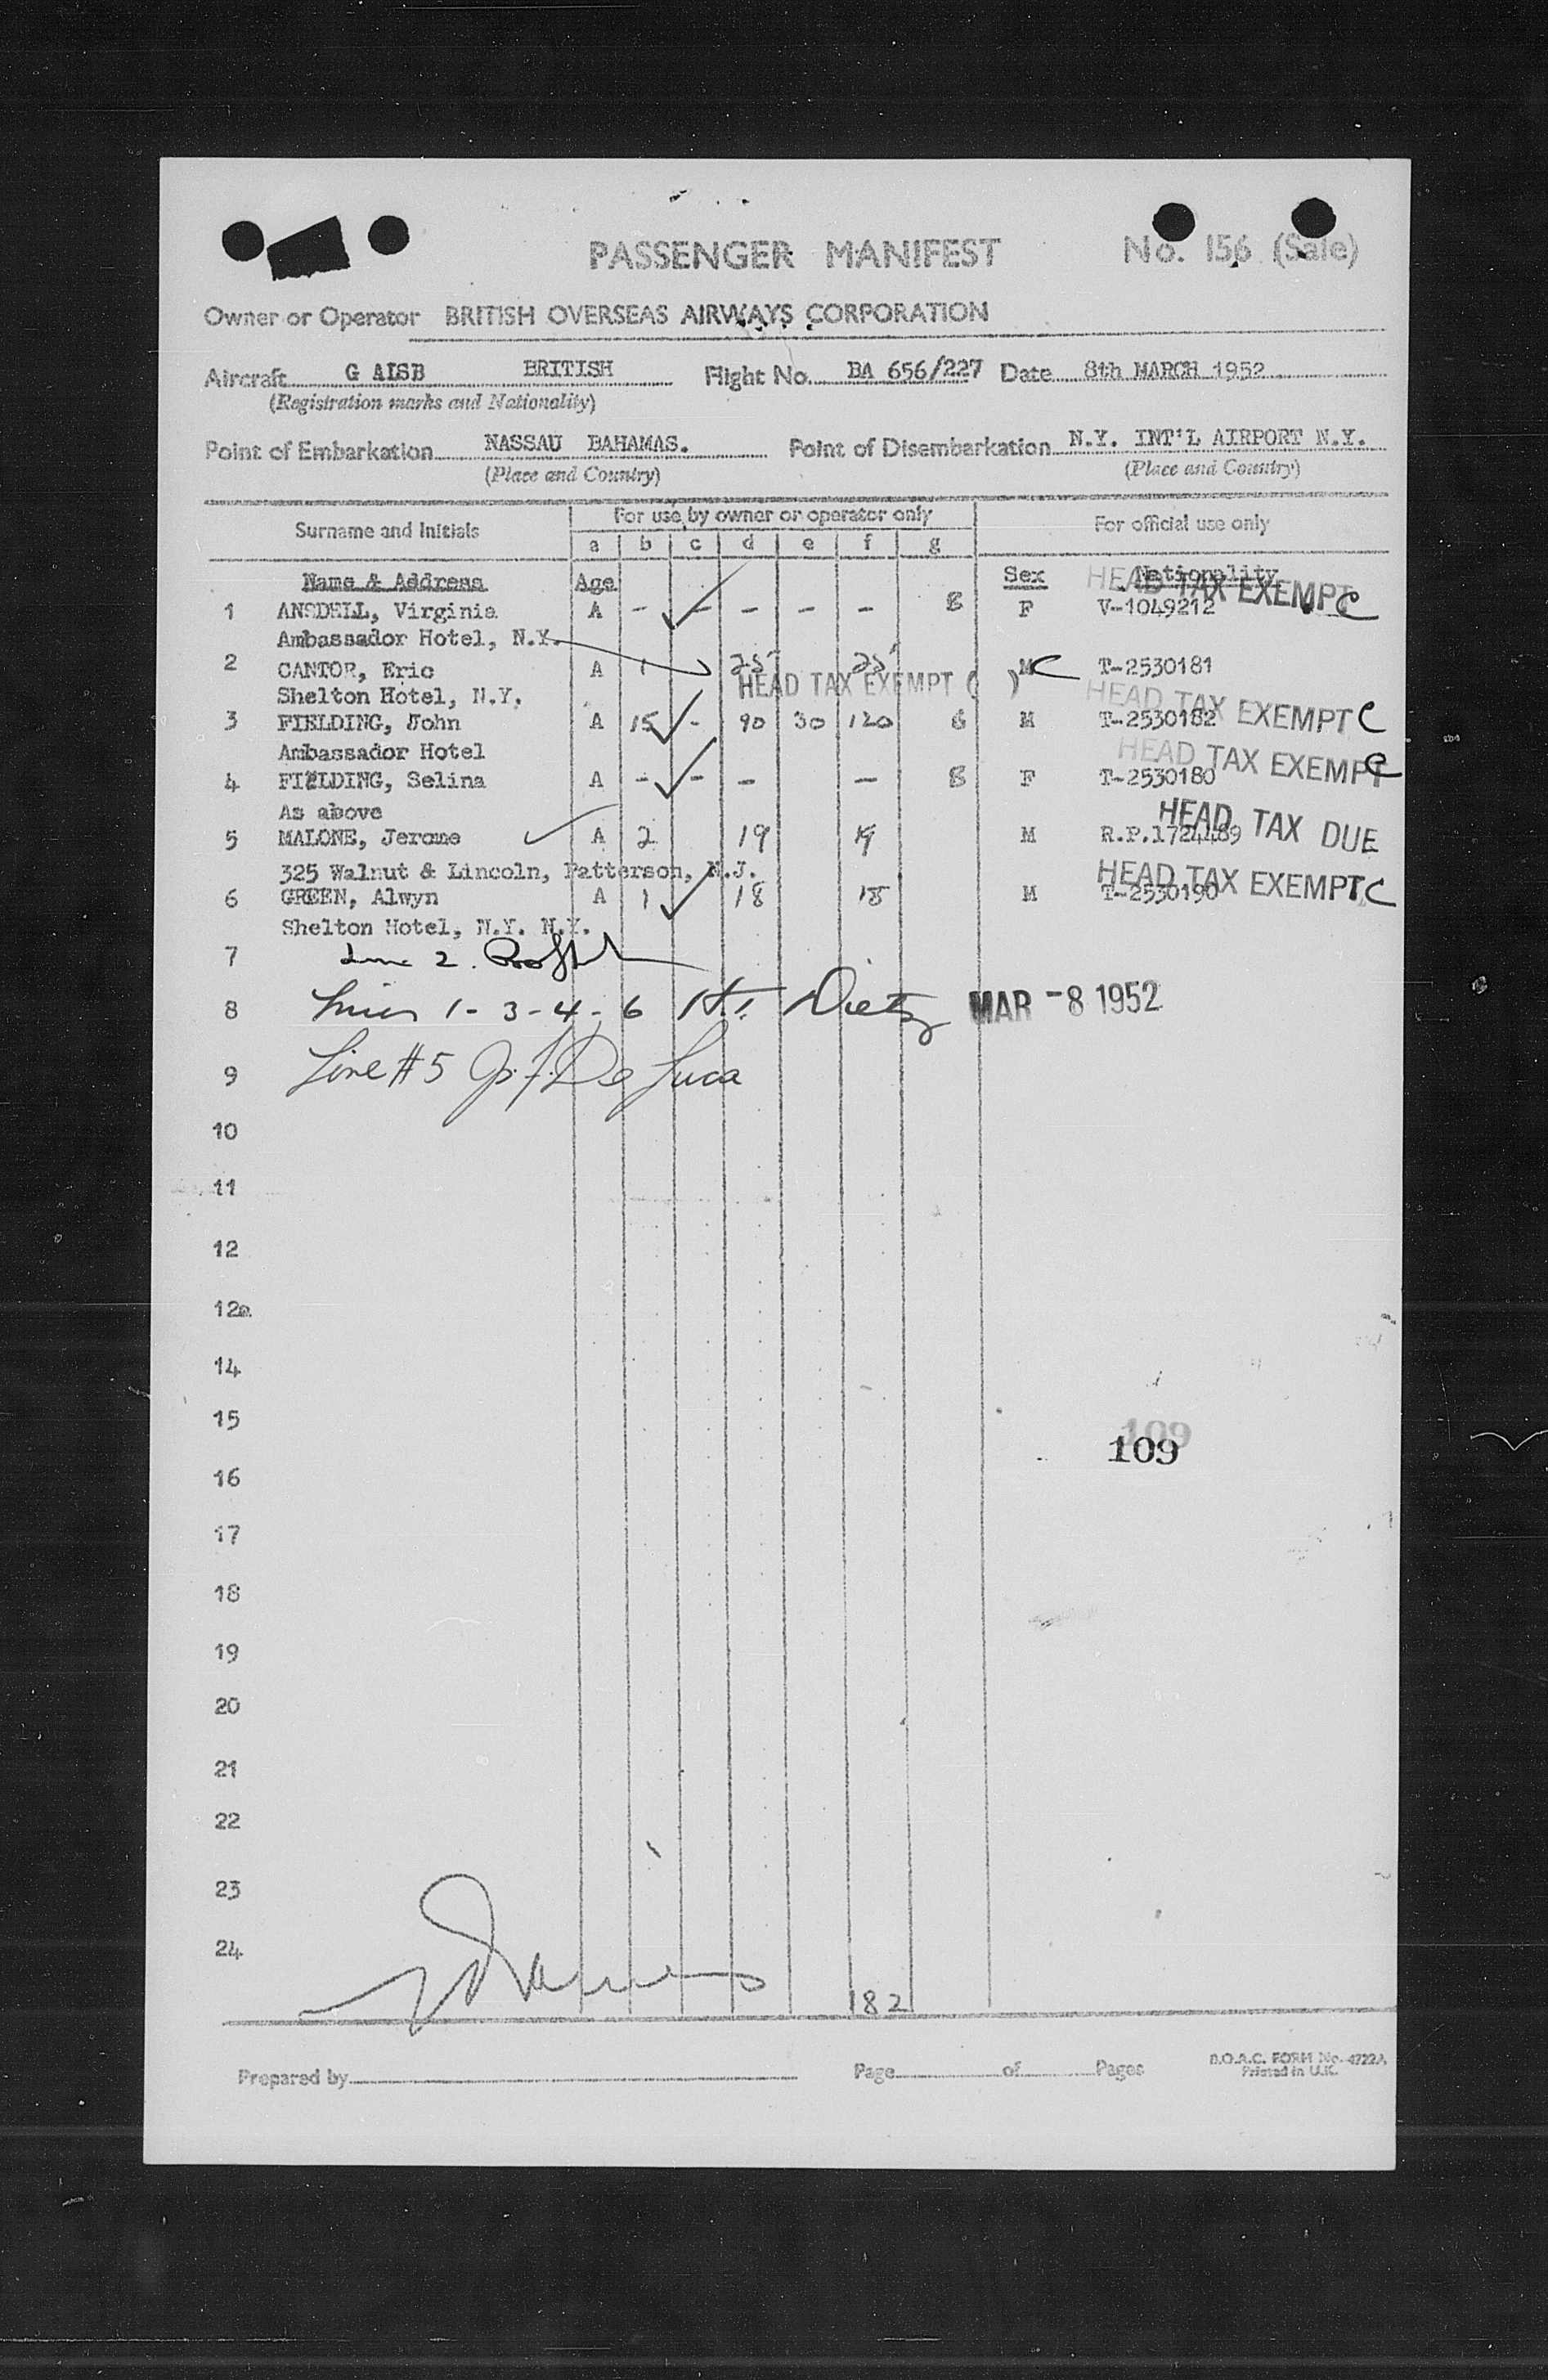 PASSENGER MANIFEST No. 156 (Sale)
Owner or Operator BRITISH OVERSEAS AIRWAYS CORPORATION
Aircraft G AISB BRITISH Flight No. BA 656/227 Date 8th MARCH 1952
(Registration marks and Nationality)
Point of Embarkation NASSAU BAHAMAS. Point of Disembarkation N.Y. INT'L AIRPORT N.Y.
(Place and Country) (Place and Country)
Surname and Initials For use by owner or operator only For official use only
a b c d e f g
Name & Address Age Sex Nationality
HEAD TAX EXEMPT C
1 ANSDELL, Virginia A - - - - - F V-1049212
Ambassador Hotel, N.Y.
2 CANTOR, Eric A 1 25 25 M C T-2530181
HEAD TAX EXEMPT ( )
Shelton Hotel, N.Y.
HEAD TAX EXEMPT C
3 FIELDING, John A 15 - 90 30 120 M T-2530182
Ambassador Hotel
HEAD TAX EXEMPT C
4 FIELDING, Selina A - - - - F T-2530180
As above
HEAD TAX DUE
5 MALONE, Jerome A 2 19 19 M R.P.1724489
325 Walnut & Lincoln, Patterson, N.J.
HEAD TAX EXEMPT C
6 GREEN, Alwyn A 1 18 18 M T-2530190
Shelton Hotel, N.Y. N.Y.
7 Line 2.
8 Lines 1-3-4-6 Dietz MAR -8 1952
9 Line #5 J. F. De Luca
10
11
12
12a
14
15
109
109
16
17
18
19
20
21
22
23
24
182
Prepared by Page of Pages
B.O.A.C. FORM No. 4722A
Printed in U.K.